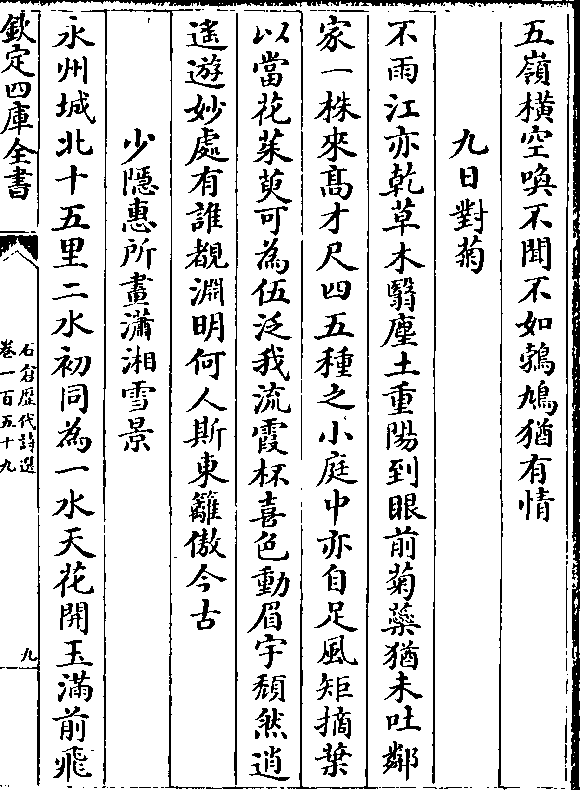 五嶺横空喚不聞不如鵓鳩猶有情
九日對菊
不雨江亦乾草木翳塵土重陽到眼前菊蘂猶未吐鄰
家一株來髙才尺四五種之小庭中亦自足風矩摘葉
以當花茱萸可為伍泛我流霞杯喜色動眉宇頽然逍
遥遊妙處有誰覩淵明何人斯東籬傲今古
少隠惠所畫瀟湘雪景
永州城北十五里二水初同為一水天花開玉滿前飛
欽定四庫全書
石倉歴代詩選
卷一百五十九
九